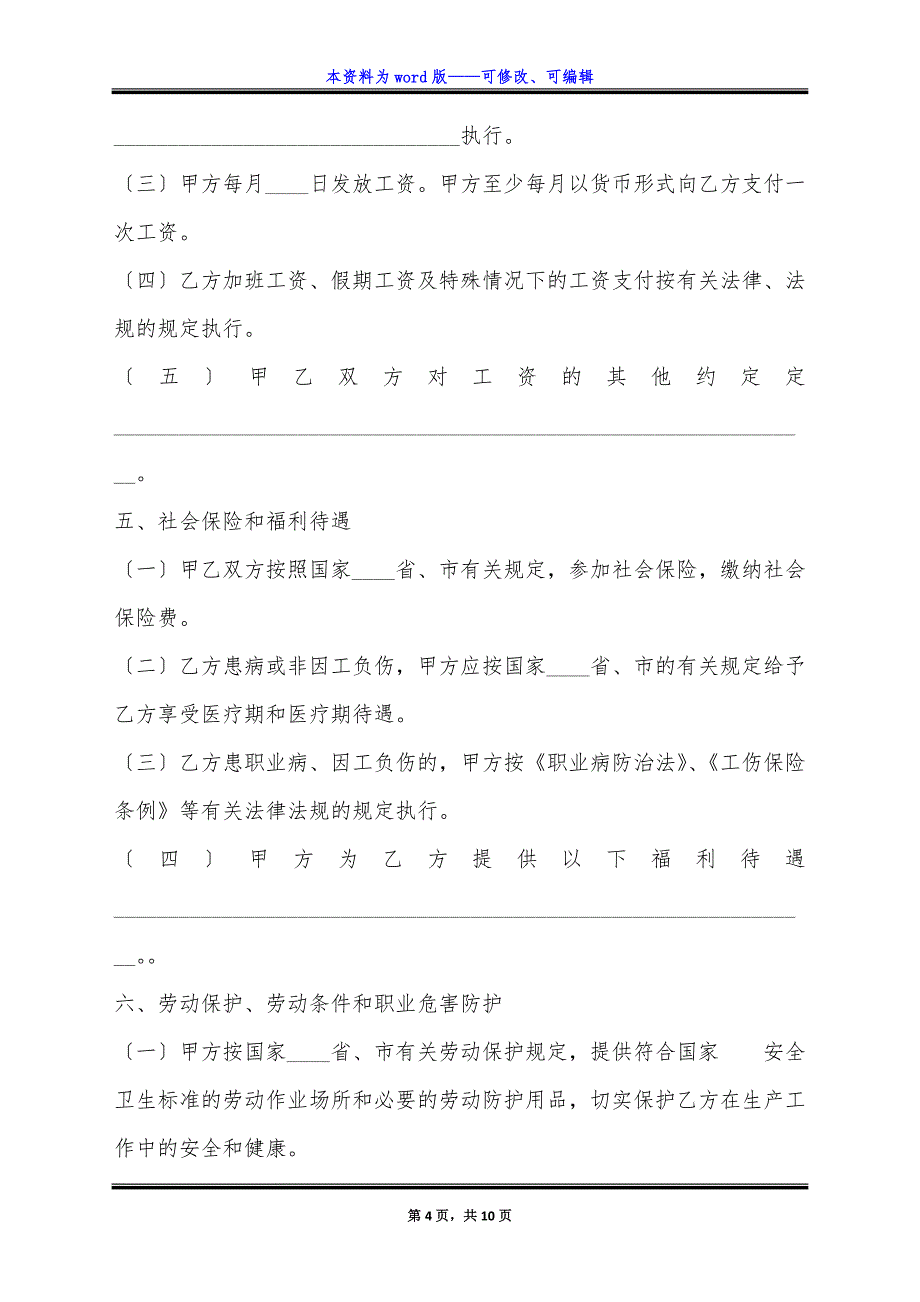 本资料为 word 版——可修改、可编辑
________________________________执行。
〔三〕甲方每月____日发放工资。甲方至少每月以货币形式向乙方支付一
次工资。
〔四〕乙方加班工资、假期工资及特殊情况下的工资支付按有关法律、法
规的规定执行。
〔五〕甲乙双方对工资的其他约定定
_______________________________________________________________
__。
五、社会保险和福利待遇
〔一〕甲乙双方按照国家____省、市有关规定，参加社会保险，缴纳社会
保险费。
〔二〕乙方患病或非因工负伤，甲方应按国家____省、市的有关规定给予
乙方享受医疗期和医疗期待遇。
〔三〕乙方患职业病、因工负伤的，甲方按《职业病防治法》、《工伤保险
条例》等有关法律法规的规定执行。
〔四〕甲方为乙方提供以下福利待遇
_______________________________________________________________
__。。
六、劳动保护、劳动条件和职业危害防护
〔一〕甲方按国家____省、市有关劳动保护规定，提供符合国家　　安全
卫生标准的劳动作业场所和必要的劳动防护用品，切实保护乙方在生产工
作中的安全和健康。
第 4 页，共 10 页